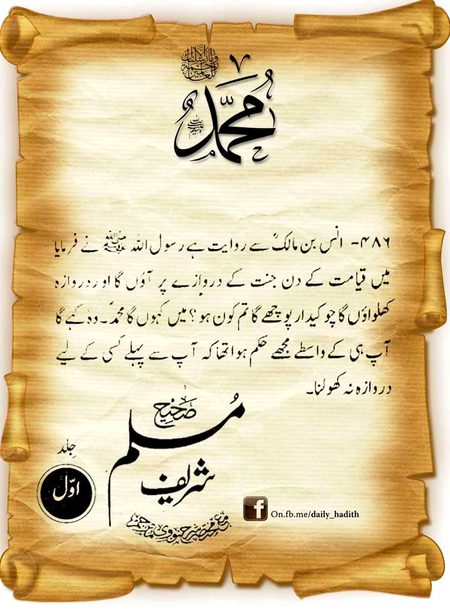 محمد
۴۸۶- انس بن مالکؓ سے روایت ہے رسول اللہ ﷺ نے فرمایا
میں قیامت کے دن جنت کے دروازے پر آؤں گا اور دروازہ
کھلواؤں گا چوکیدار پوچھے گا تم کون ہو؟ میں کہوں گا محمدؐ۔ وہ کہے گا
آپ ہی کے واسطے مجھے حکم ہوا تھا کہ آپ سے پہلے کسی کے لیے
دروازہ نہ کھولنا۔
صحیح
مسلم
شریف
جلد
اوّل
On.fb.me/daily_hadith